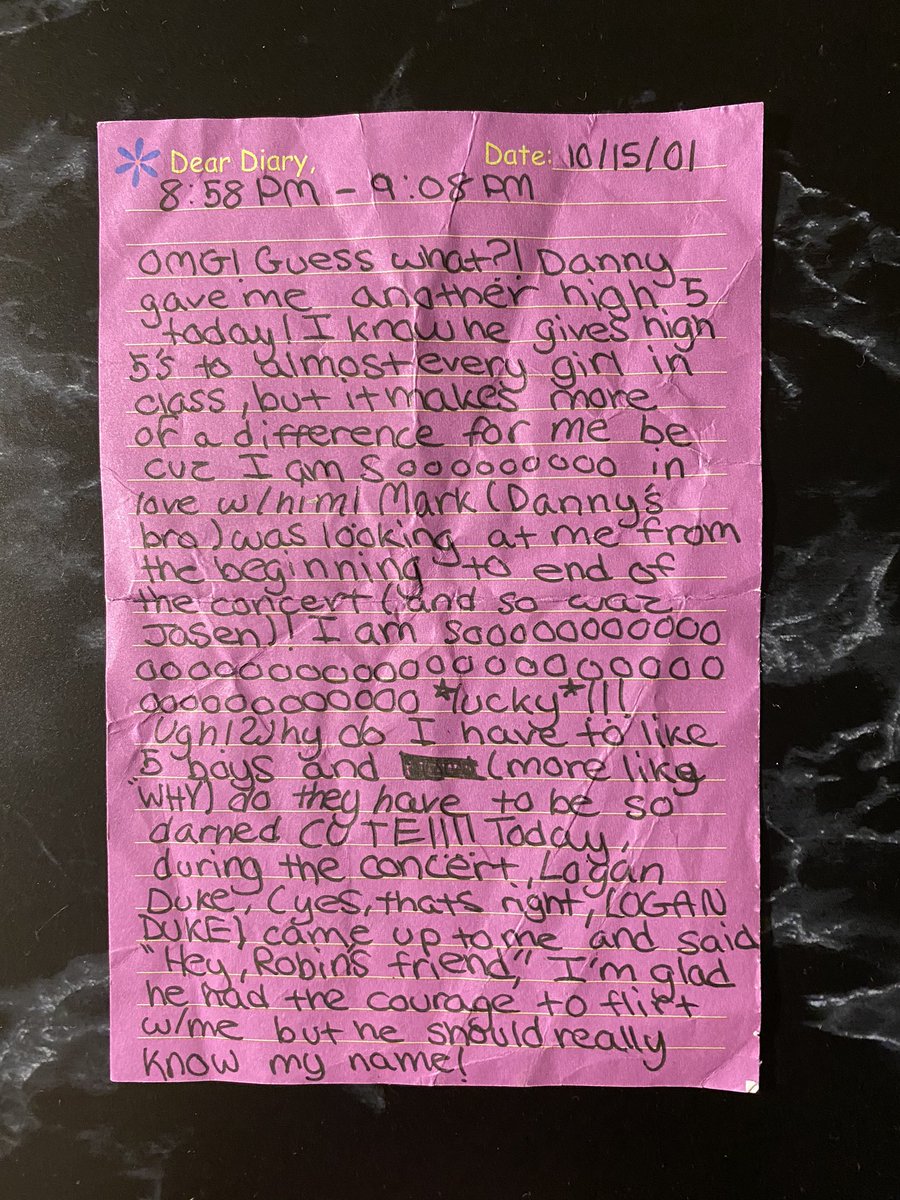 Dear Diary, Date: 10/15/01
8:58 PM - 9:08 PM
OMG! Guess what?! Danny
gave me another high 5
today! I know he gives high
5's to almost every girl in
class, but it makes more
of a difference for me be
cuz I am Sooooooooo in
love w/him! Mark (Danny's
bro) was looking at me from
the beginning to end of
the concert (and so waz
Josen)! I am sooooooooooo
oooooooooooooooooooooo
oooooooooooo *lucky*!!!
Ugh! Why do I have to like
5 boys and (more like
"WHY) do they have to be so
darned CUTE!!!!! Today,
during the concert, Logan
Duke, (yes, thats right, LOGAN
DUKE) came up to me and said
"Hey, Robins friend," I'm glad
he had the courage to flirt
w/me but he should really
know my name!